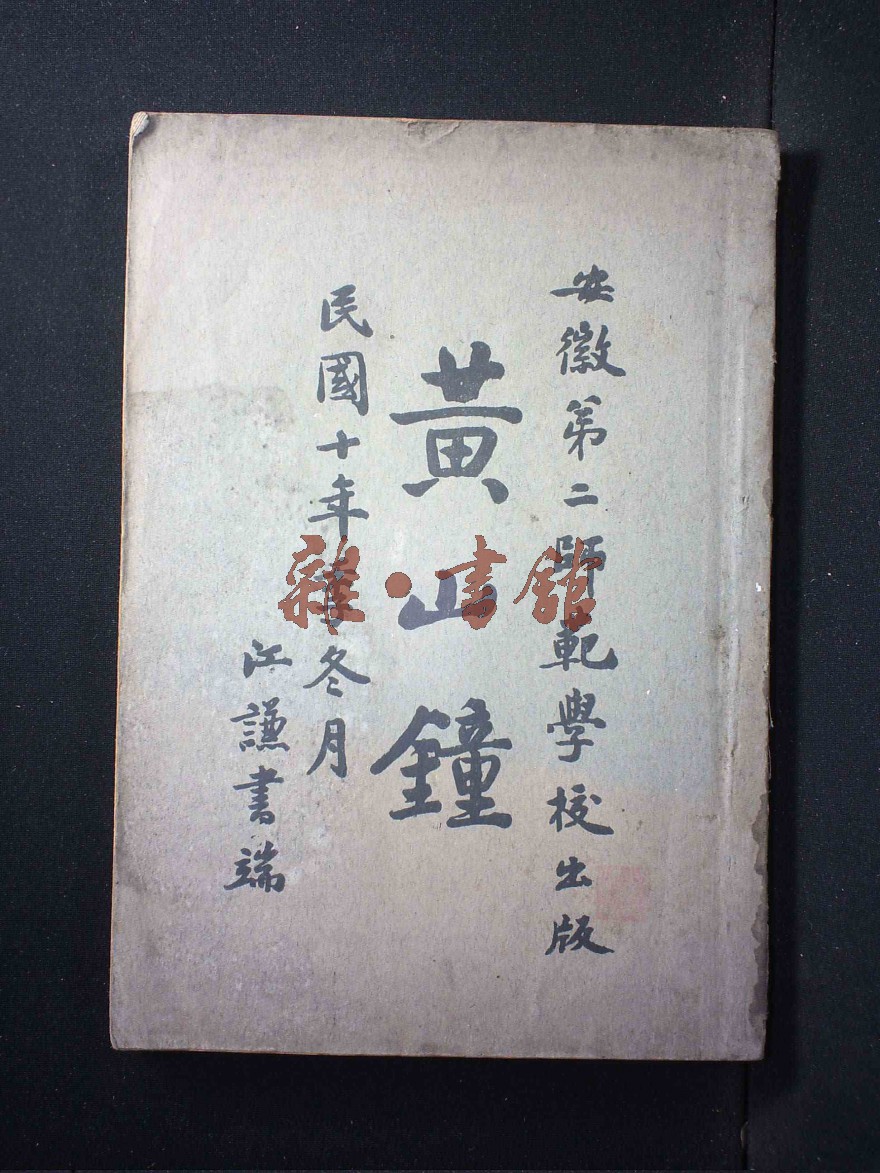 安徽第二師範學校出版
黃山鐘
民國十年 冬月
江謙書端
雜·書館